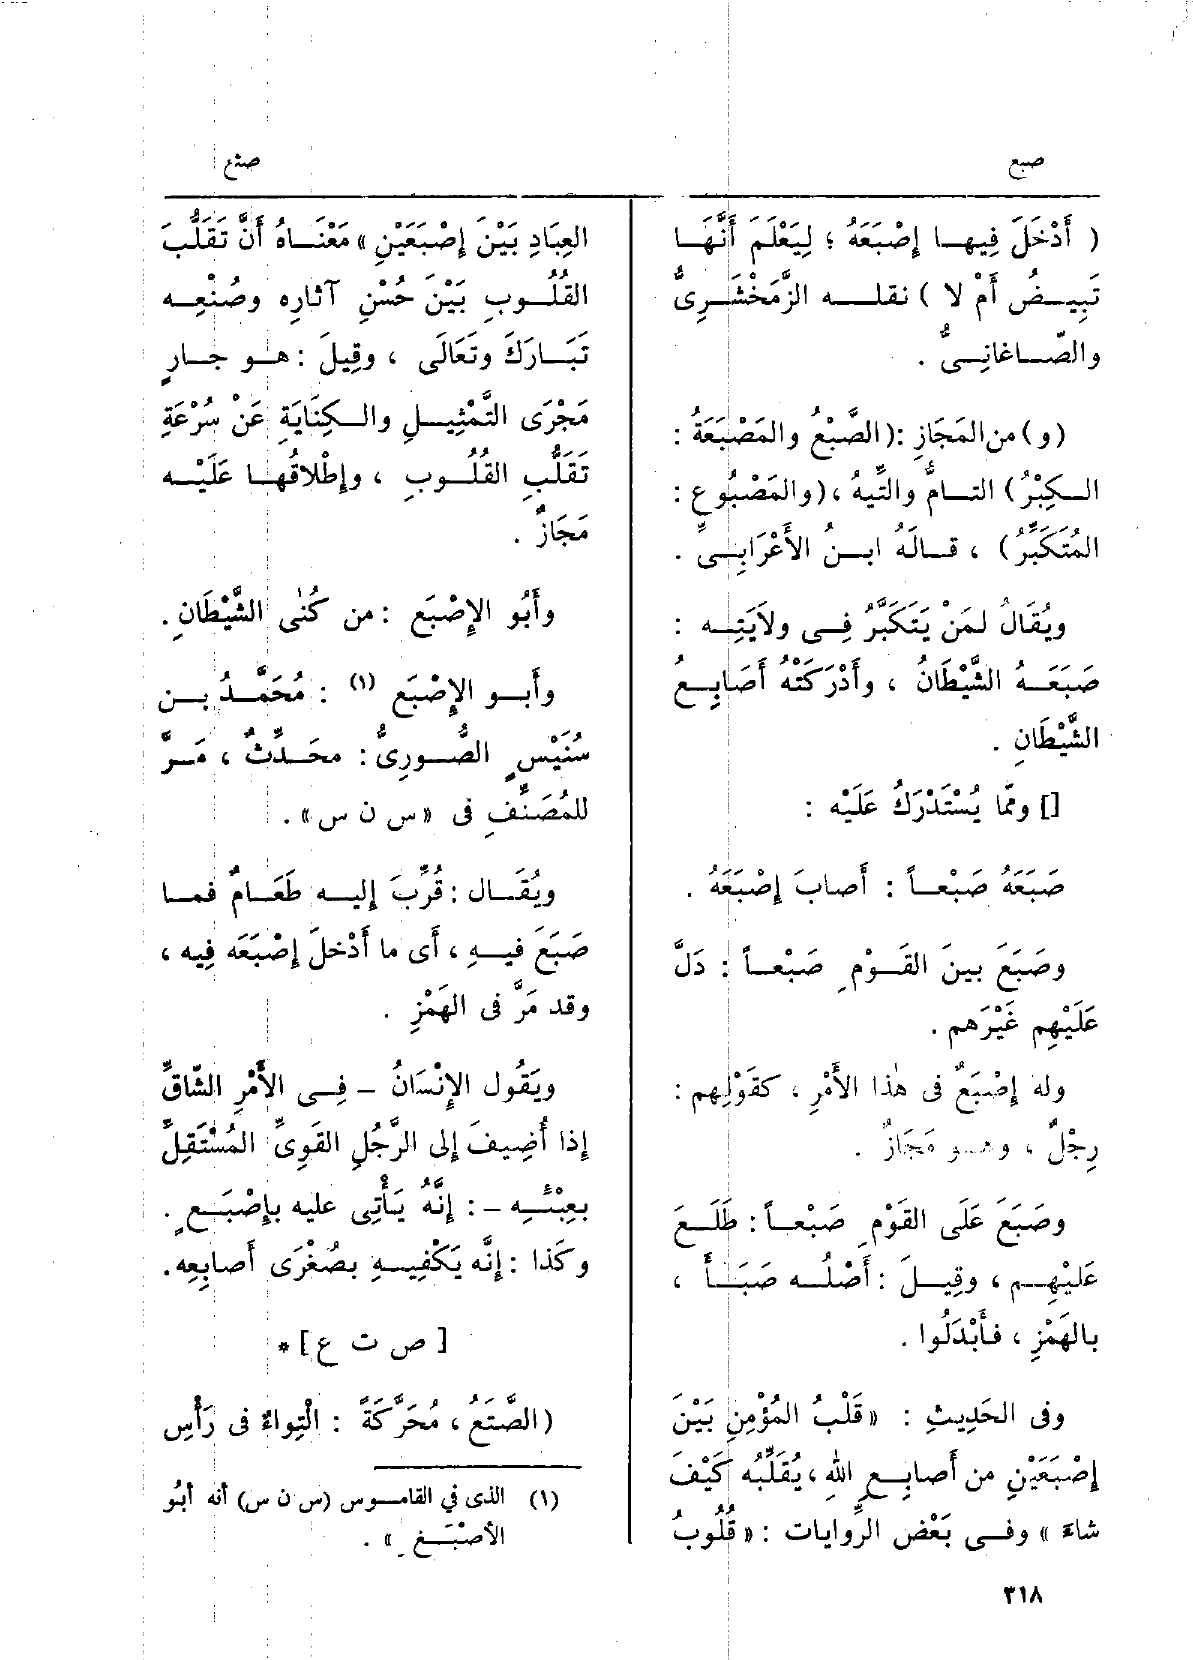 صبع
صتع
( أَدْخَلَ فِيهـا إِصْبَعَهُ ؛ لِيَعْلَمَ أَنَّهَـا
تَبِيـضُ أَمْ لا ) نقلـــه الزَّمَخْشَـرِىُّ
والصّـاغانِـىُّ .
(و) من المَجَازِ :(الصَّبْعُ والمَصْبَعَةُ :
الـكِبْرُ) التـامُّ والتِّيهُ ،(والمَصْبُوع :
المُتَكَبِّرُ) ، قـالَهُ ابـنُ الأَعْرَابِـىِّ .
ويُقَالُ لمَنْ يَتَكَبَّرُ فِـى ولاَيَتِـه :
صَبَعَـهُ الشَّيْطَانُ ، وأَدْرَكَتْهُ أَصَابِـعُ
الشَّيْطَانِ .
[] وممّا يُسْتَدْرَكُ عَلَيْه :
صَبَعَهُ صَبْعـاً : أَصابَ إِصْبَعَهُ .
وصَبَعَ بينَ القَـوْمِ صَبْعـاً : دَلَّ
عَلَيْهِم غَيْرَهم .
وله إِصْبَعٌ فى هٰذا الأَمْرِ ، كقَوْلِهم :
رِجْلٌ ، وهـو مَجَازٌ .
وصَبَعَ عَلَى القَوْمِ صَبْعـاً : طَلَـعَ
عَلَيْهِـم ، وقِيـلَ : أَصْلُـه صَبَـأَ ،
بالهَمْزِ ، فأَبْدَلُوا .
وفى الحَدِيثِ : « قَلْبُ المُؤْمِنِ بَيْنَ
إِصْبَعَيْنِ من أَصابِـعِ اللهِ ، يُقَلِّبُه كَيْفَ
شاءَ » وفـى بَعْضِ الرِّوايات : « قُلُوبُ
العِبَادِ بَيْنَ إِصْبَعَيْنِ » مَعْنَـاهُ أَنَّ تَقَلُّبَ
القُلُـوبِ بَيْنَ حُسْنِ آثارِه وصُنْعِـه
تَبَـارَكَ وتَعَالَى ، وقِيلَ : هـو جـارٍ
مَجْرَى التَّمْثِيـلِ والـكِنَايَةِ عَنْ سُرْعَةِ
تَقَلُّبِ القُلُـوبِ ، وإِطْلاقُهـا عَلَيْـه
مَجَازٌ .
وأَبُو الإِصْبَع : من كُنَى الشَّيْطَانِ .
وأَبـو الإِصْبَع (١) : مُحَمَّـدُ بـن
سُنَيْسٍ الصُّـورِىُّ : محَـدِّثٌ ، مَـرَّ
للمُصَنِّفِ فى « س ن س » .
ويُقَـال : قُرِّبَ إليـه طَعَـامٌ فمـا
صَبَعَ فيـهِ ، أَى ما أَدْخلَ إِصْبَعَه فِيه ،
وقد مَرَّ فى الهَمْزِ .
ويَقُول الإِنْسَانُ – فِـى الأَمْرِ الشّاقِّ
إذا أُضِيفَ إلى الرَّجُلِ القَوِىِّ المُسْتَقِلِّ
بعِبْئِـه – : إِنَّهُ يَـأْتِى عليه بإِصْبَـعٍ .
وكَذا : إِنَّه يَكْفِيـهِ بصُغْرَى أَصابِعِه.
[ ص ت ع ] *
(الصَّتَعُ ، مُحَرَّكَةً : الْتِواءٌ فى رَأْسِ
(١) الذى في القامـوس (س ن س) أنه أَبُو
الأَصْبَـغ » .
٣١٨